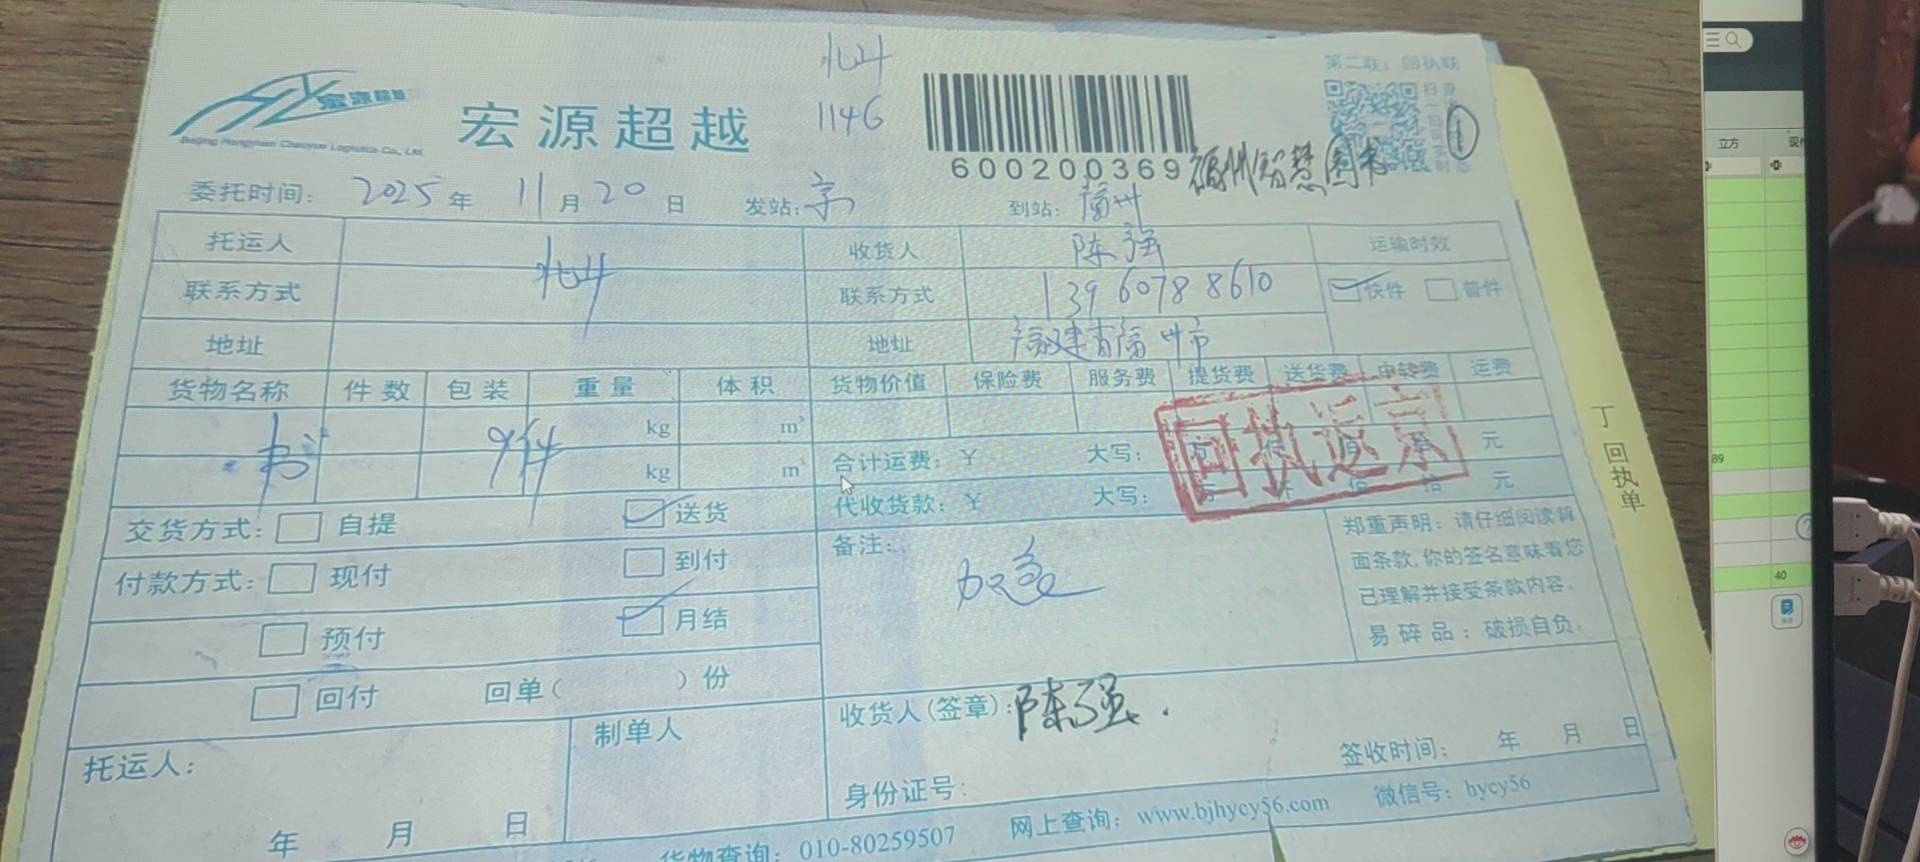 北斗
第二联：回执联
宏源超越
Beijing Hongyuan Chaoyue Logistics Co., Ltd.
宏源超越
1146
600200369
福州智慧图书
1
委托时间： 2025 年 11 月 20 日 发站：京 到站：福州
托运人 北斗 收货人 陈强 运输时效
联系方式 联系方式 13960788610 快件 普件
地址 地址 福建省福州市
货物名称 件数 包装 重量 体积 货物价值 保险费 服务费 提货费 送货费 中转费 运费
书 9件 kg m³
kg m³
合计运费：￥ 大写： 元
代收货款：￥ 大写： 元
回执返京
交货方式： 自提 送货
付款方式： 现付 到付
预付 月结
回付 回单（ ）份
备注： 加急
郑重声明：请仔细阅读背
面条款,你的签名意味着您
已理解并接受条款内容。
易碎品：破损自负。
托运人：
年 月 日
制单人
收货人(签章)：陈强.
签收时间： 年 月 日
身份证号：
货物查询：010-80259507 网上查询：www.bjhycy56.com 微信号：hycy56
丁 回执单
立方
89
40